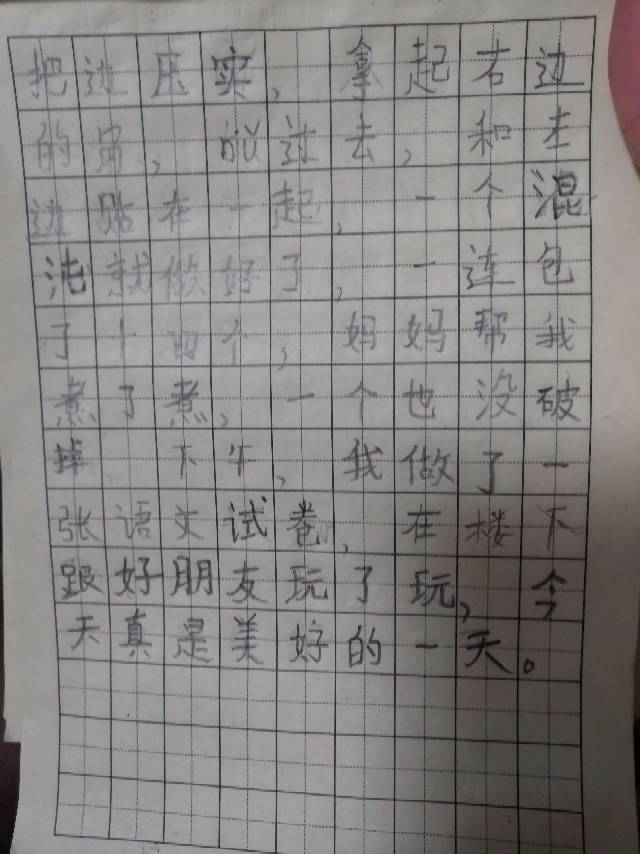 把边压实，拿起右边
的角，叹过去，和左
边贴在一起，一个混
沌就做好了，一连包
了十四个，妈妈帮我
煮了煮，一个也没破
掉 下午，我做了一
张语文试卷，在楼下
跟好朋友玩了玩，今
天真是美好的一天。